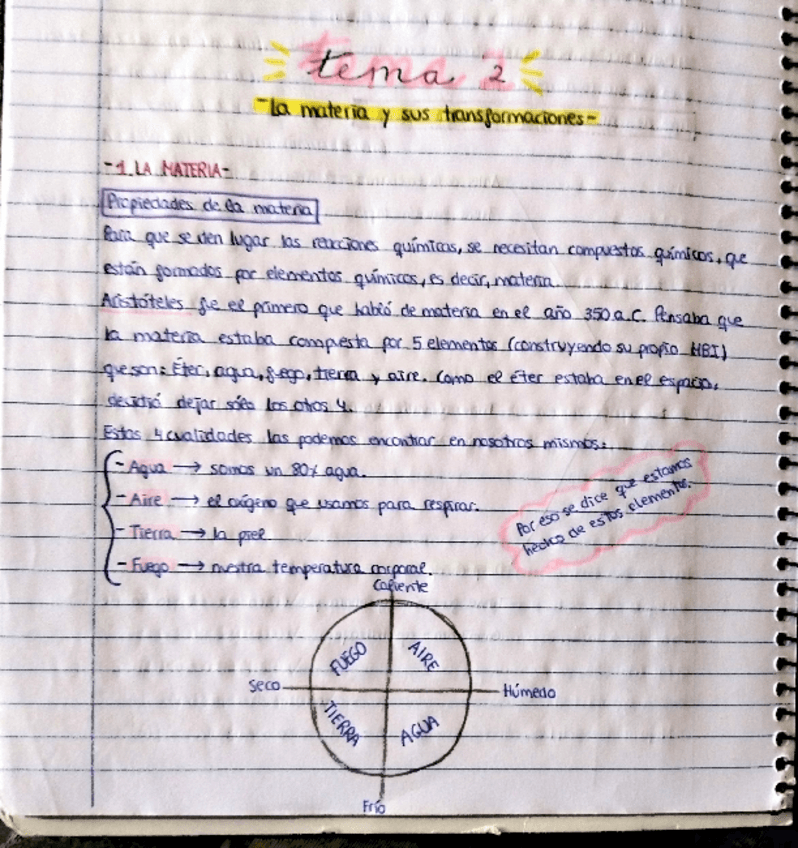 tema 2
-La materia y sus transformaciones-
-1. LA MATERIA-
Propiedades de la materia
Para que se den lugar las reacciones químicas, se necesitan compuestos químicos, que
están formados por elementos químicos, es decir, materia.
Aristóteles fue el primero que habló de materia en el año 350 a.C. Pensaba que
la materia estaba compuesta por 5 elementos (construyendo su propio HBI)
que son: Éter, agua, fuego, tierra y aire. Como el éter estaba en el espacio,
decidió dejar sólo los otros 4.
Estas 4 cualidades las podemos encontrar en nosotros mismos:
- Agua → somos un 80% agua.
- Aire → el oxígeno que usamos para respirar.
- Tierra → la piel
- Fuego → nuestra temperatura corporal.
Por eso se dice que estamos
hechos de estos elementos.
Caliente
FUEGO AIRE
Seco Húmedo
TIERRA AGUA
Frío